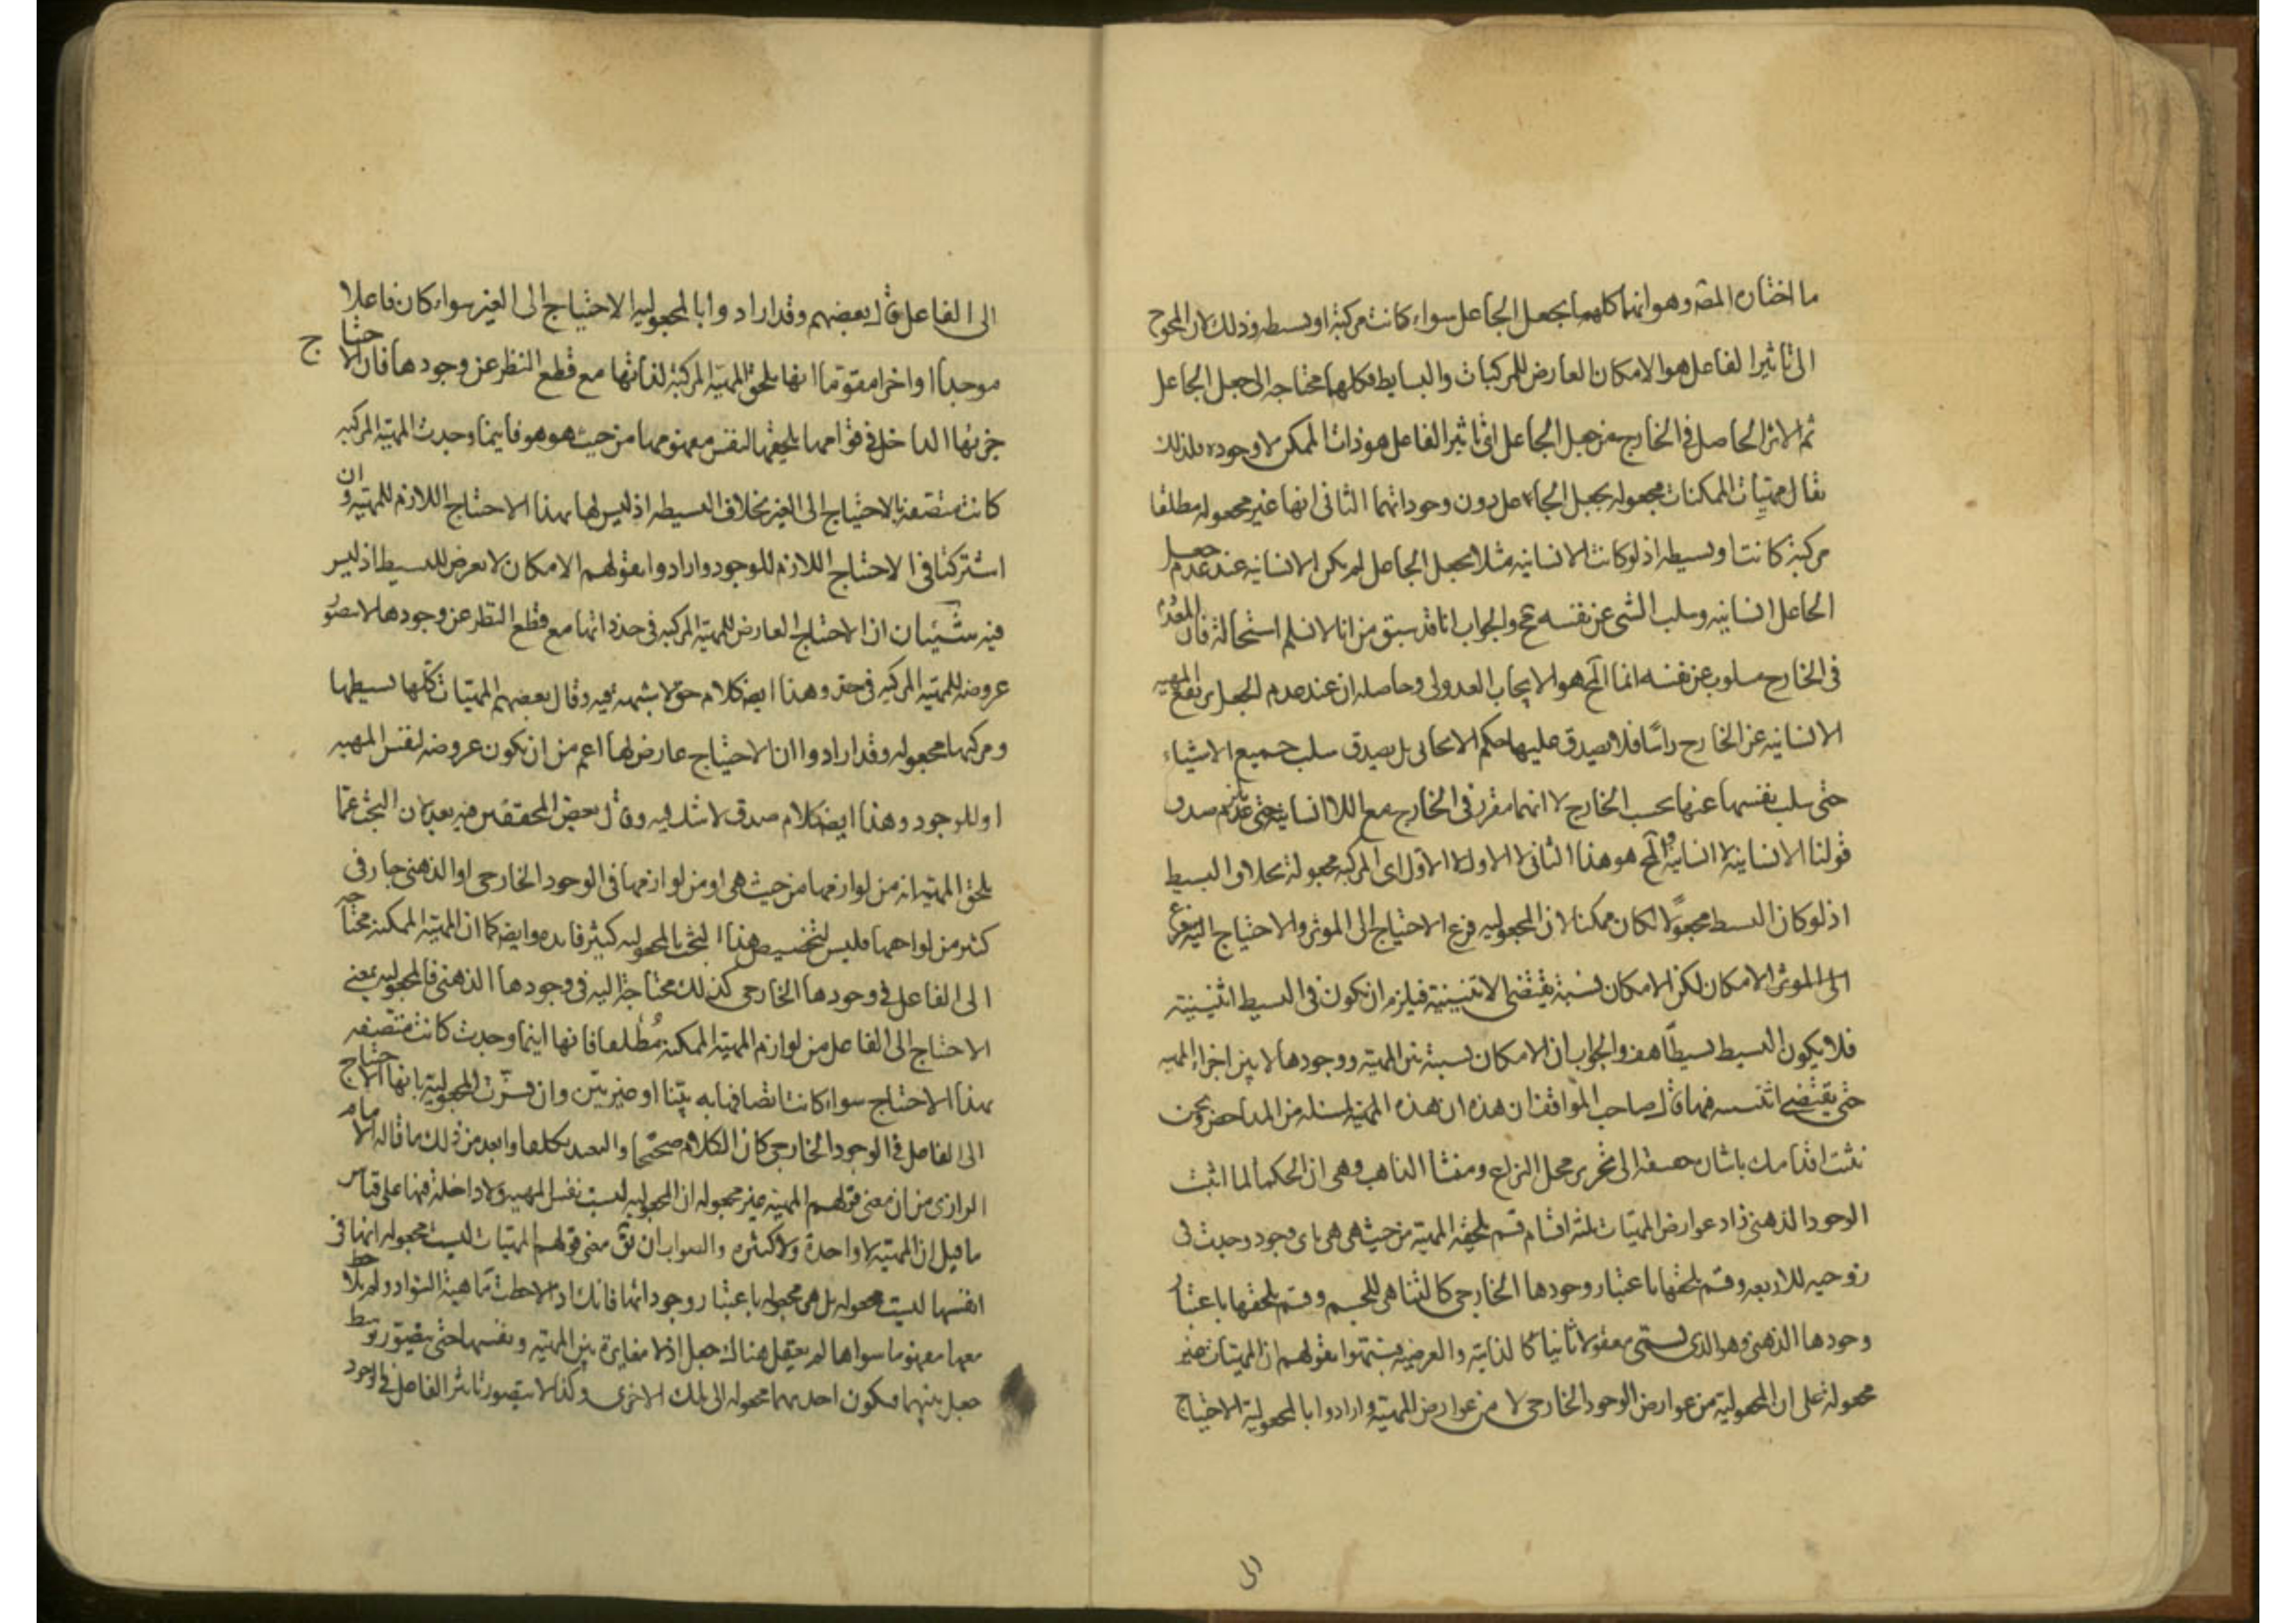 ما اختاره المصه وهو انها كلها بجعل الجاعل سواء كانت مركبة او بسيطه وذلك لان المحوج
الى تاثير الفاعل هو الامكان العارض للمركبات والبسايط فكلها محتاجه الى جعل الجاعل
ثم الاثر الحاصل فى الخارج من جعل الجاعل اى تاثير الفاعل هو ذات الممكن لا وجوده فلذلك
يقال مهيات الممكنات مجعوله بجعل الجاعل دون وجوداتها الثانى انها غير مجعوله مطلقا
مركبة كانت او بسيطه اذ لو كانت الانسانيه مثلا بجعل الجاعل لم يكن الانسانيه عند عدم جعل
الجاعل انسانيه وسلب الشى عن نفسه مح والجواب انا قد سبق من انا لا نسلم استحالة فان المعدوم
فى الخارج مسلوب عن نفسه انما المح هو الايجاب العدولى وحاصله ان عند عدم الجعل يرتفع المهيه
الانسانيه عن الخارج راسا فلا يصدق عليها حكم الايجابى بل يصدق سلب جميع الاشياء
حتى سلب نفسها عنها بحسب الخارج لا انها مقرر فى الخارج مع اللا انسانيه حتى يلزم صدق
قولنا الانسانية لا انسانية والمح هو هذا الثانى لا الاول الاول اى المركبة مجعولة بخلاف البسيط
اذ لو كان البسيط مجعولا لكان ممكنا لان المجعوليه فرع الاحتياج الى الموثر والاحتياج اليه فرع
الى الموثر الامكان لكن الامكان نسبة يقتضى الاثنينية فيلزم ان تكون فى البسيط اثنينية
فلا يكون البسيط بسيطا هف والجواب ان الامكان نسبة بين المهية ووجودها لا بين اجزاء المهيه
حتى يقتضى اثنينيه فيها قال صاحب المواقف ان هذه ان هذه المهية لمسئلة من المداحض ونحن
نثبت اقدامك باشارة خفيفة الى تحرير محل النزاع ومنشأ المذاهب وهى ان الحكما لما اثبت
الوجود الذهنى زاد عوارض المهيات ثلثه اقسام قسم يلحقه المهية من حيث هى هى باى وجود وجدت فى
زوجيه للاربعه وقسم يلحقها باعتبار وجودها الخارجى كالتناهى للجسم وقسم يلحقها باعتبار
وجودها الذهنى وهو الذى يسمى معقولا ثانيا كالذاتيه والعرضيه فنبهوا بقولهم ان المهيات غير
مجعولة على ان المجعولية من عوارض الوجود الخارجى لا من عوارض المهية وارادوا بالمجعولية الاحتياج
الى الفاعل قال بعضهم وقد ارادوا بالمجعوليه الاحتياج الى الغير سواء كان فاعلا
موجدا او جزا مقوما انها يلحق المهية المركبة لذاتها مع قطع النظر عن وجودها فان الاحتياج
جزئها الداخل فى قوامها يلحقها لنفس مفهومها من حيث هو هو فاينما وجدت المهية المركبه
كانت متصفة بالاحتياج الى الغير بخلاف البسيطه اذ ليس لها هذا الاحتياج اللازم للمهية وان
اشتركتا فى الاحتياج اللازم للوجود وارادوا بقولهم الامكان لا يعرض للبسيط اذ ليس
فيه شيئان ان الاحتياج العارض للمهية المركبه فى حد ذاتها مع قطع النظر عن وجودها لا يتصور
عروضه للمهية المركبه فى حد وهذا ايضه كلام حق لا شبهه فيه وقال بعضهم المهيات كلها بسيطها
ومركبها مجعوله وقد ارادوا ان الاحتياج عارض لها اعم من ان يكون عروضه لنفس المهيه
او للوجود وهذا ايضه كلام صدق لا شك فيه وقال بعض المحققين فيه بعد لان البحث عما
يلحق المهية انه من لوازمها من حيث هى او من لوازمها فى الوجود الخارجى او الذهنى جار فى
كثير من لواحقها فليس لتخصيص هذا البحث بالمجعوليه كثير فايده وايضه كما ان المهية الممكنه محتاجه
الى الفاعل فى وجودها الخارجى كذلك محتاجة اليه فى وجودها الذهنى فالمجعوليه بمعنى
الاحتياج الى الفاعل من لوازم المهية الممكنه مطلقا فانها اينما وجدت كانت متصفه
بهذا الاحتياج سواء كانت اتصافها به بينا او غير بين وان فسرت المجعولية بانها الاحتياج
الى الفاعل فى الوجود الخارجى كان الكلام صحيحا والتعبد تكلفا وابعد من ذلك ما قاله الامام
الرازى من ان معنى قولهم المهية غير مجعوله ان المجعوليه ليست نفس المهيه ولا داخلة فيها على قياس
ما قيل ان المهية لا واحدة ولا كثيره والصواب ان يق معنى قولهم المهيات ليست مجعوله انها فى
انفسها ليست مجعوله بل هى مجعوله باعتبار وجوداتها فانك اذا لاحظت ماهية السواد ولم يلاحظ
معها مفهوما سواها لم يعقل هناك جعل اذ لا مغايرة بين المهية ونفسها حتى يتصور توسط
جعل بينهما فيكون احديهما مجعوله الى تلك الاخرى وكذا لا يتصور تاثير الفاعل فى الوجود